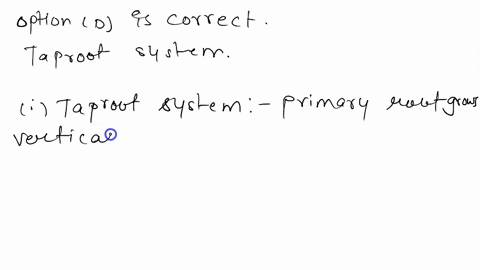 option (D) is correct.
Taproot system.
(i) Taproot system:- primary root grows
vertica